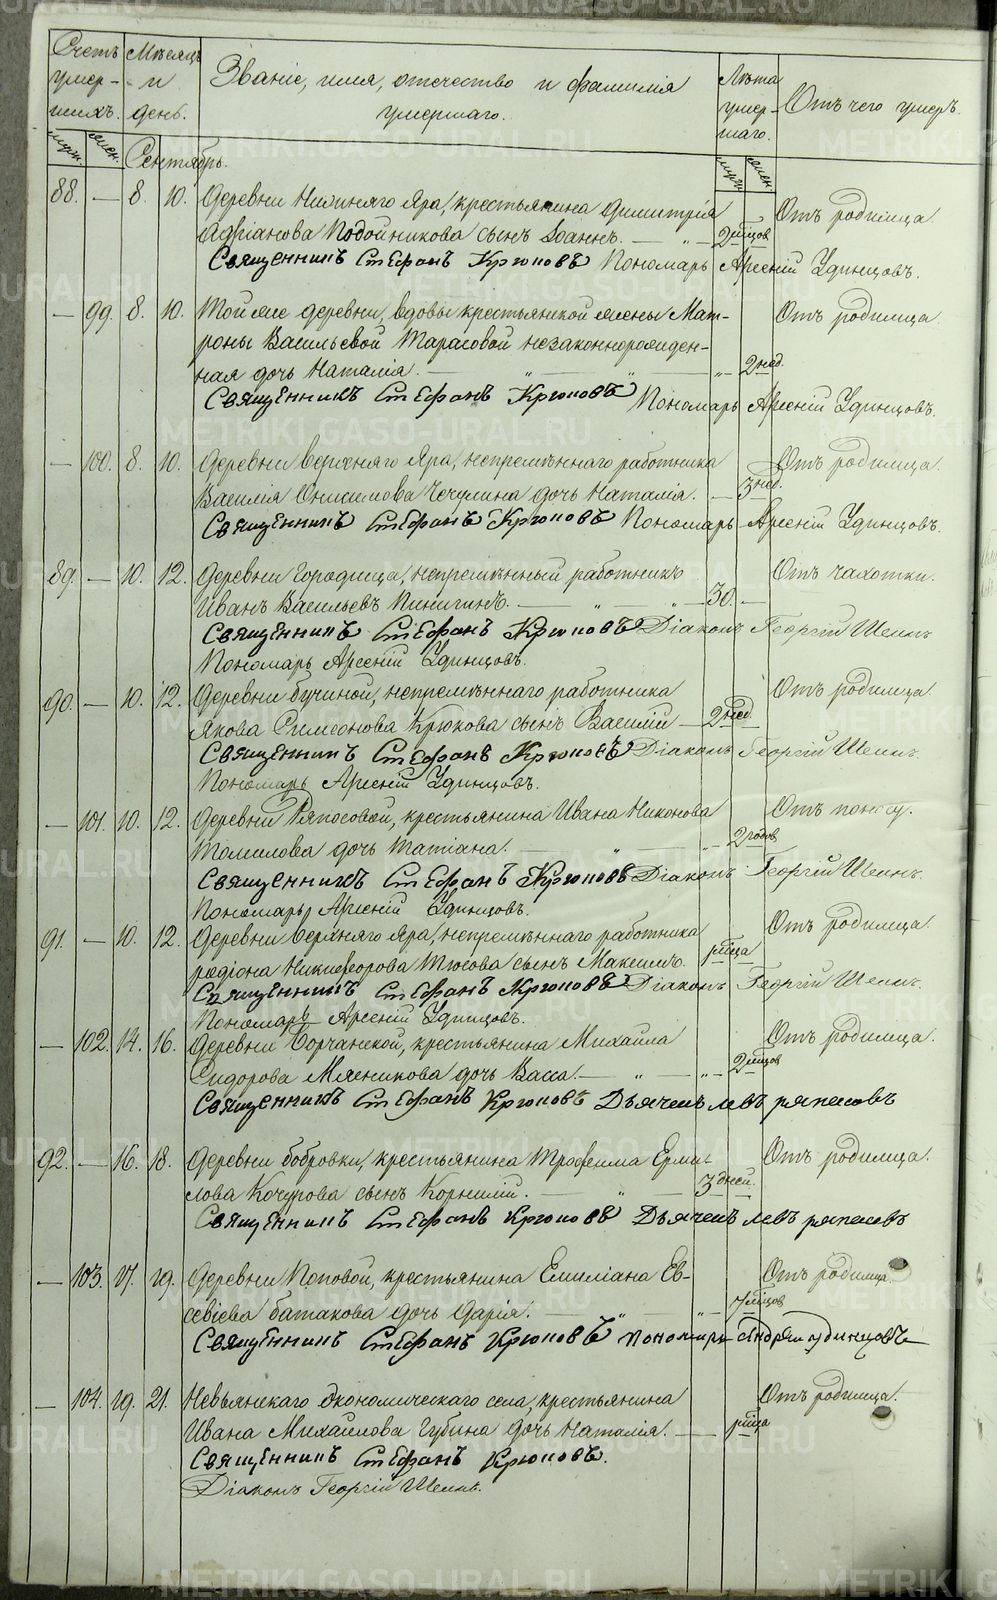 Счетъ умер-шихъ. Мѣсяцъ и день. Званіе, имя, отечество и фамилія умершаго. Лѣта умер-шаго. Отъ чего умеръ.
муж. жен. Сентябрь. муж. жен.
88. — 8. 10. Деревни Нижняго Яра, крестьянина Димитрія Отъ родимца
Адріанова Подойникова сынъ Іоаннъ. — „ — 2 мѣцов
Священникъ Стефанъ Крюковъ Пономарь Арсеній Удинцовъ.
— 99. 8. 10. Той же деревни, вдовы крестьянской жены Мат- Отъ родимца
роны Васильевой Тарасовой незаконнорожден-
ная дочь Наталія. — „ — „ — „ 2 нед.
Священникъ Стефанъ Крюковъ Пономарь Арсеній Удинцовъ.
— 100. 8. 10. Деревни Верхняго Яра, непремѣннаго работника Отъ родимца.
Василія Онисимова Чечулина дочь Наталія. — 3 нед.
Священникъ Стефанъ Крюковъ Пономарь Арсеній Удинцовъ.
89. — 10. 12. Деревни Городища, непремѣнный работникъ Отъ чахотки.
Иванъ Васильевъ Пинигинъ. — „ — „ — 30. —
Священникъ Стефанъ Крюковъ Діаконъ Георгій Шеинъ
Пономарь Арсеній Удинцовъ.
90. — 10. 12. Деревни Бучиной, непремѣннаго работника Отъ родимца.
Якова Симеонова Крюкова сынъ Василій — 2 нед.
Священникъ Стефанъ Крюковъ Діаконъ Георгій Шеинъ.
Пономарь Арсеній Удинцовъ.
— 101. 10. 12. Деревни Ряпосовой, крестьянина Ивана Никонова Отъ поносу.
Томилова дочь Татіана. — „ — „ — 2 годов
Священникъ Стефанъ Крюковъ Діаконъ Георгій Шеинъ.
Пономарь Арсеній Удинцовъ.
91. — 10. 12. Деревни Верхняго Яра, непремѣннаго работника Отъ родимца.
Родіона Никифорова Тюсова сынъ Максимъ. 1 мѣца
Священникъ Стефанъ Крюковъ Діаконъ Георгій Шеинъ.
Пономарь Арсеній Удинцовъ.
— 102. 14. 16. Деревни Борчанской, крестьянина Михаила Отъ родимца.
Сидорова Мясникова дочь Васса. — „ — „ — 2 мѣцов
Священникъ Стефанъ Крюковъ Дьячекъ Левъ Ряпасовъ
92. — 16. 18. Деревни Бобровки, крестьянина Трофима Ерми- Отъ родимца.
лова Кочурова сынъ Корнилій. — „ — 3 дней.
Священникъ Стефанъ Крюковъ Дьячекъ Левъ Ряпасовъ
— 103. 17. 19. Деревни Поповой, крестьянина Емиліана Ев- Отъ родимца.
севіева Батакова дочь Дарія. — „ — „ — 7 мѣцов
Священникъ Стефанъ Крюковъ Пономарь Андрей Удинцовъ
— 104. 19. 21. Невьянскаго Экономическаго села, крестьянина Отъ родимца.
Ивана Михайлова Губина дочь Наталія. — 1 мѣца
Священникъ Стефанъ Крюковъ.
Діаконъ Георгій Шеинъ.